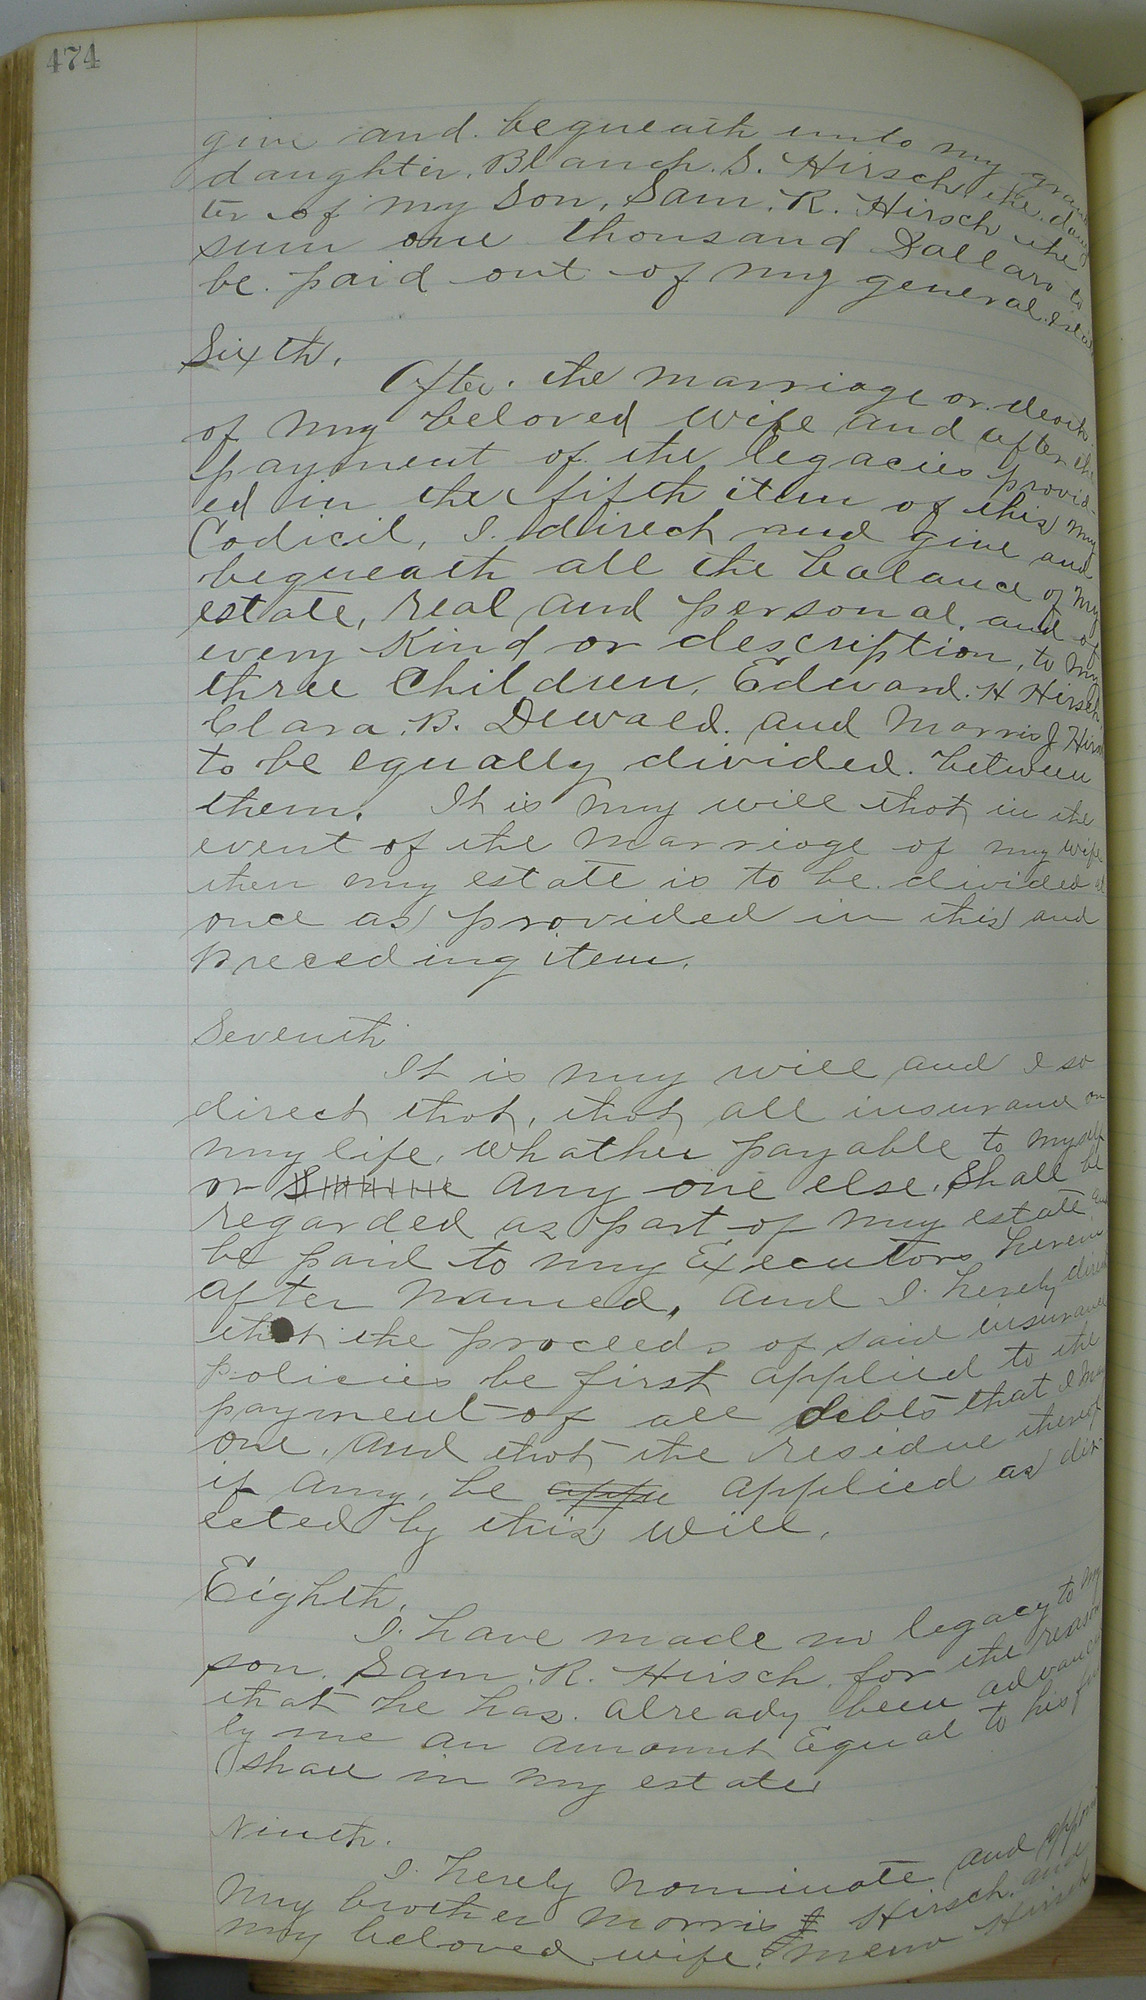 474
give and bequeath unto my gran
daughter, Blanch. S. Hirsch the daug
ter of my Son, Sam. R. Hirsch the
sum one thousand Dollars to
be paid out of my general
Sixth.
After the marriage or death
of my beloved wife and after the
payment of the legacies provid-
ed in the fifth item of this my
Codicil, I direct and give and
bequeath all the balance of my
estate, real and personal, and of
every Kind or description, to my
three Children, Edward. H Hirsch
Clara. B. Dewald. and Morris J Hirs
to be equally divided. between
them. It is my will that in the
event of the marriage of my wife
then my estate is to be divided at
once as provided in this and
preceding item.
Seventh
It is my will and I so
direct that, that all insurance on
my life, whather payable to myself
or any one else, Shall be
regarded as part of my estate, and
be paid to my Executors herein
after named, and I hereby direct
that the proceeds of said insurance
policies be first applied to the
payment of all debts that I may
one, and that the residue thereof
if any, be appli applied as dir
ected by this will.
Eighth.
I have made no legacy to my
son. Sam. R. Hirsch, for the reason
that he has already been advanced
by me an amount Equal to his full
share in my estate
Ninth.
I hereby nominate and appoint
my brother Morris Hirsch and
my beloved wife, Hirsch